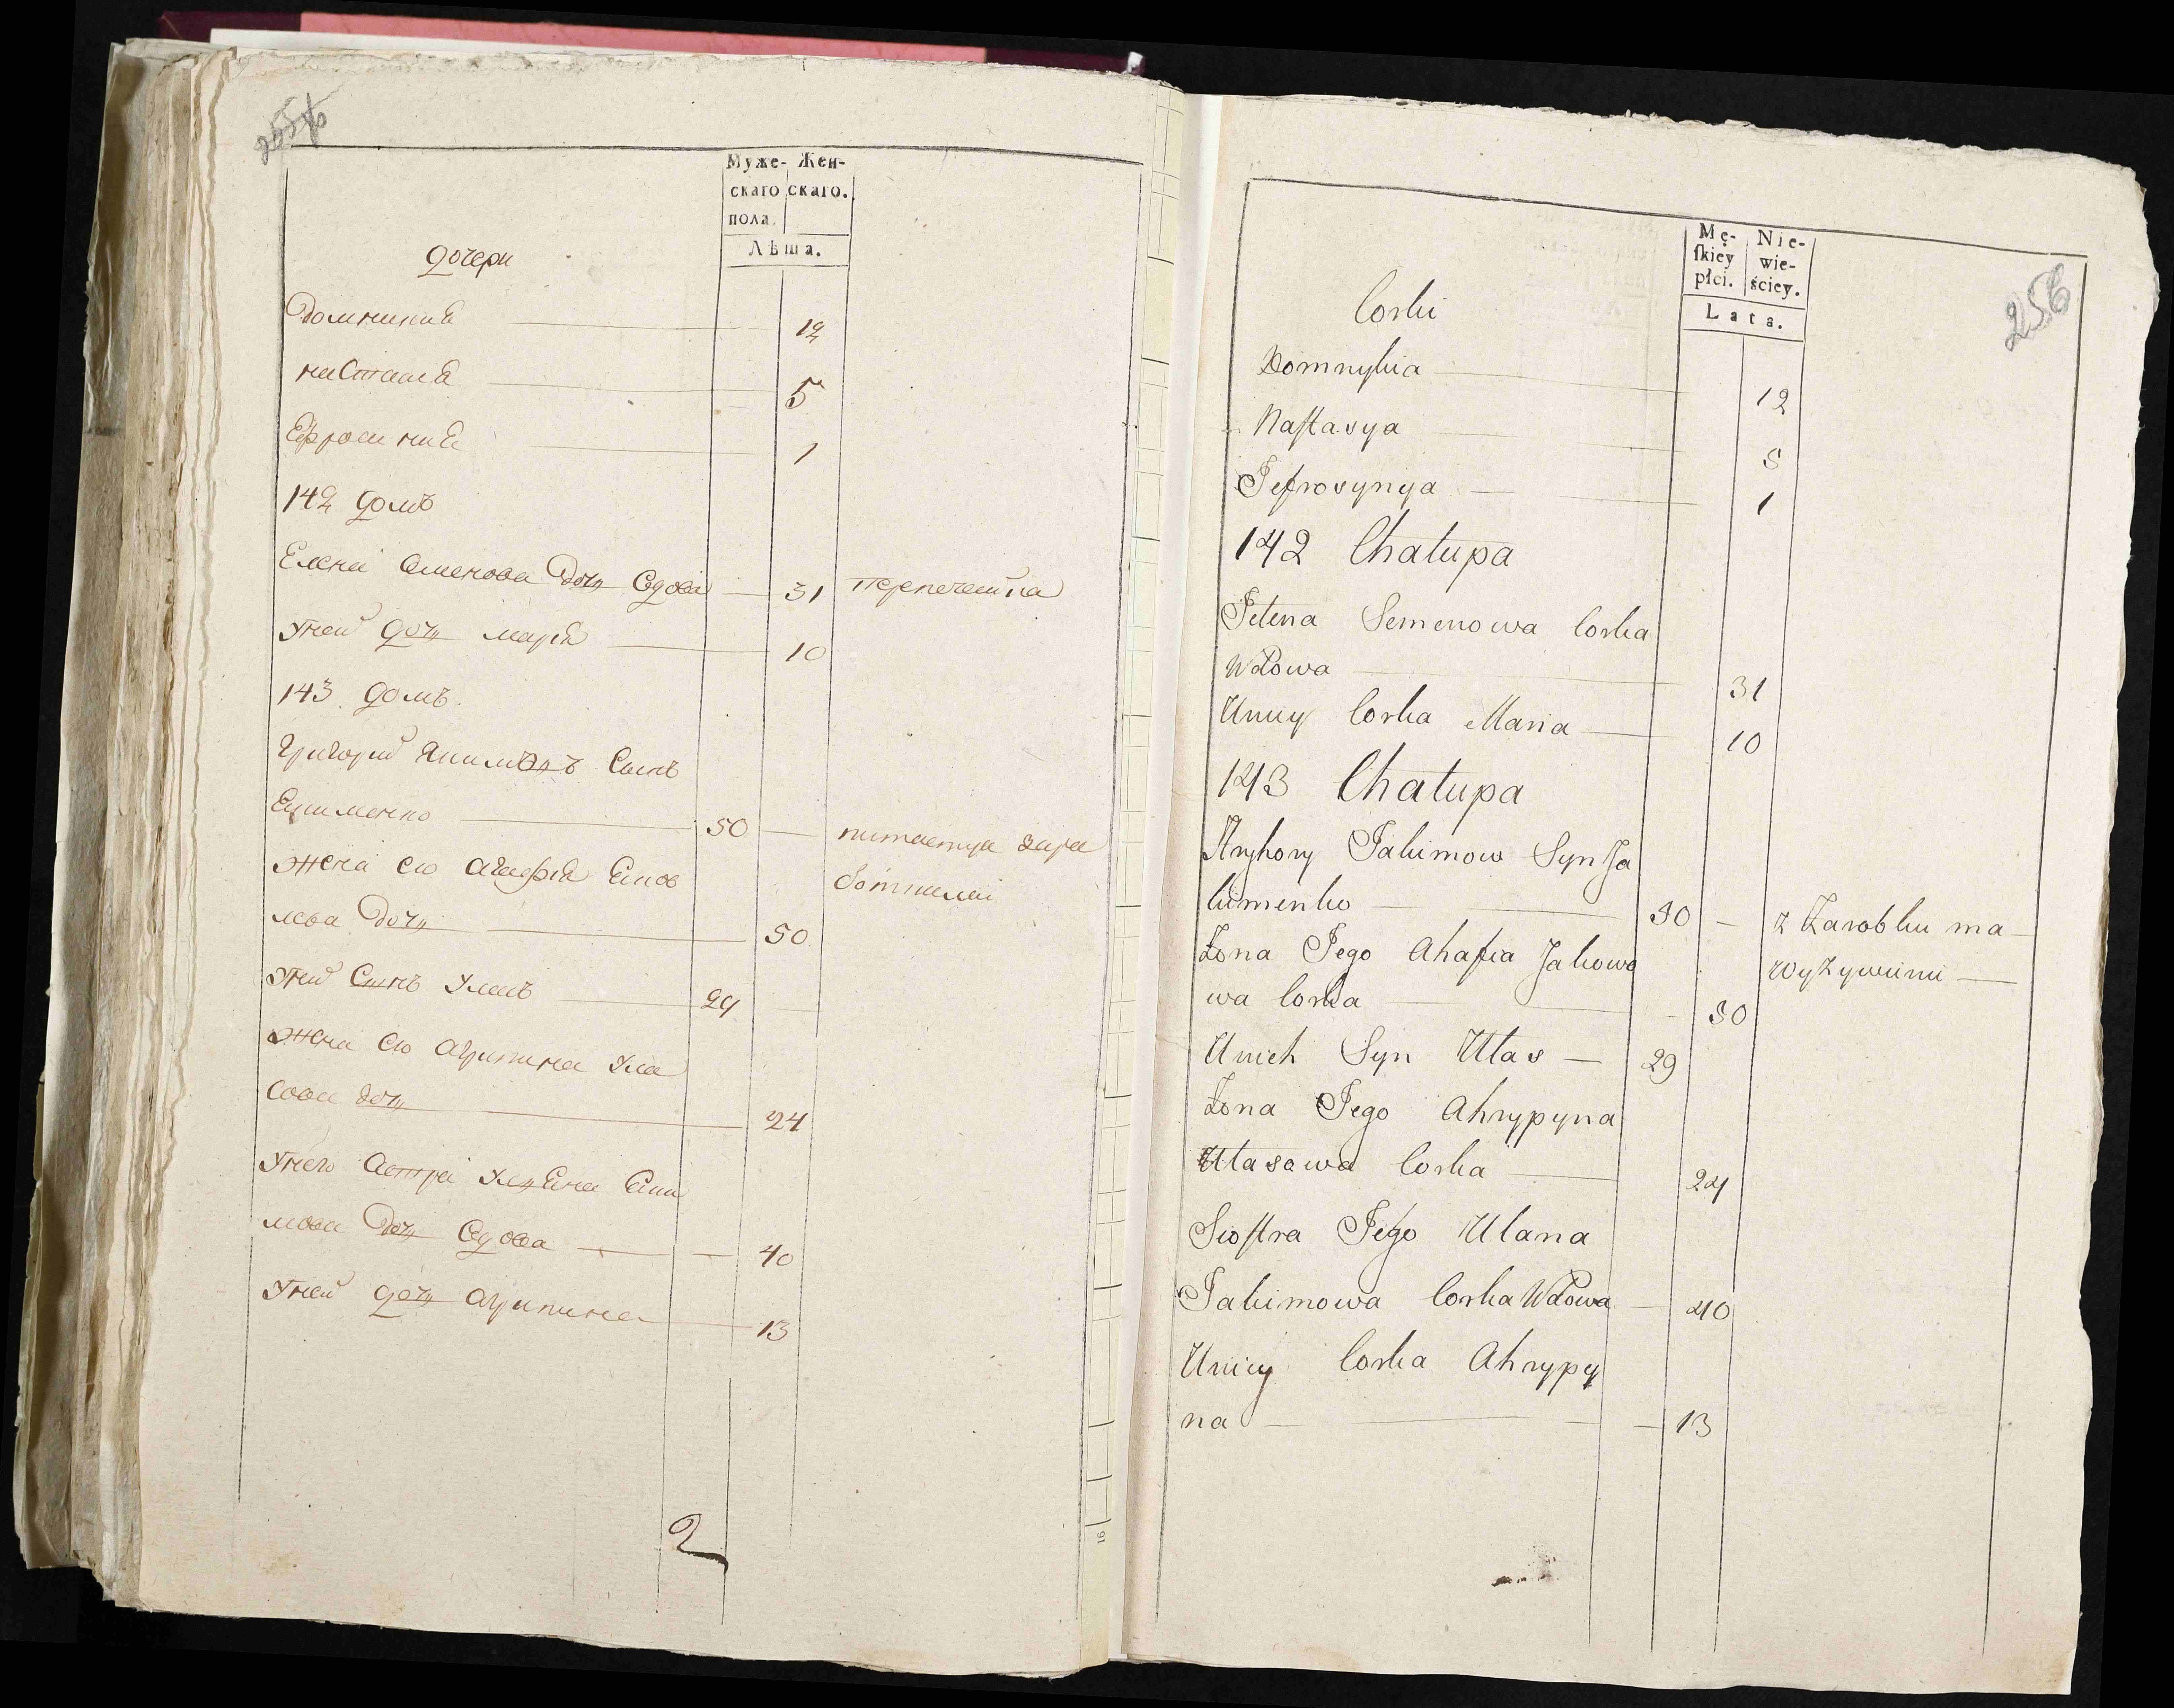 255
Муже- Жен-
скаго скаго.
пола.
Лѣта.
дочери
Домникия 12
настасия 5
Ефросиния 1
142 домъ
Елена Семенова Дочь вдова — 31
уней дочь марія 10
143 домъ.
Григорий Якимовъ Сынъ
Екименко 50 — питается зара
жена его агафия Яков ботками
лева Дочь 50
уней Сынъ Улас 29
жена его агрипина Ула
сова дочь 24
унего сестра Ульяна Яки
мова Дочь вдова — 40
уней дочь агрипина 13
2
256
Mę- Nie-
ſkiey wie-
płci. ściey.
Lata.
Corki
Domnykia 12
Naſtasya 5
Jefrosynya 1
142 Chałupa
Jelena Semenowa Corka
Wdowa 31
Uniey Corka Maria 10
143 Chałupa
Hryhory Jakimow Syn Ja
kimenko 50 — z Zarobku ma
Zona Jego Ahafia Jakowo wyżywieni —
wa Corka 50
Unich Syn Ułas — 29
Zona Jego Ahrypyna
Ułasowa Corka 24
Sioſtra Jego Ulana
Jakimowa Corka Wdowa — 40
Uniey Corka Ahrypy
na — 13
16